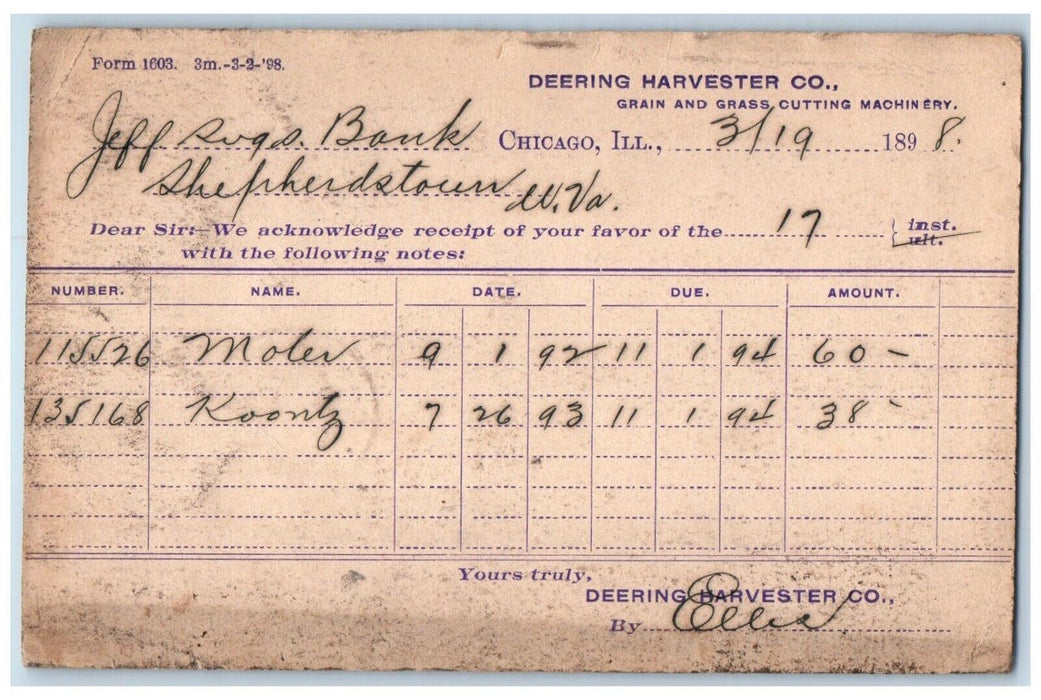 Form 1603. 3m.-3-2-'98.
DEERING HARVESTER CO.,
GRAIN AND GRASS CUTTING MACHINERY.
Jeff Svgs. Bank CHICAGO, ILL., 3/19 1898.
Shepherdstown W. Va.
Dear Sir:—We acknowledge receipt of your favor of the 17 { inst. ult.
with the following notes:
NUMBER. NAME. DATE. DUE. AMOUNT.
115526 Moler 9 1 92 11 1 94 60 -
135168 Koontz 7 26 93 11 1 94 38 -
Yours truly,
DEERING HARVESTER CO.,
By Ellis